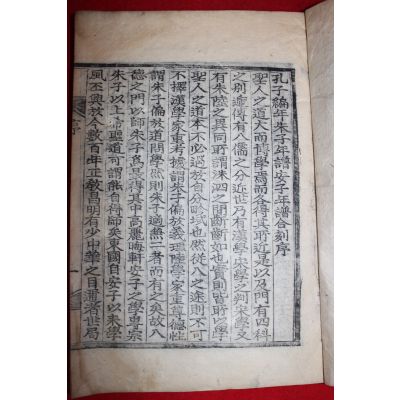 孔子編年朱子年譜安子年譜合刻序
聖人之道大而博學焉而各得其所近是以及門有四科
之別速傳有八儒之分近世乃有漢學宋學之判宋學又
有朱陸之異同所謂洙泗之間斷斷如也實則皆所以學
聖人之道本不必過於自分畛域也然從入之途則不可
不擇漢學家重考據謂朱子偏於義理陸學家重尊德性
謂朱子偏於道問學然則朱子適無二者而有之矣故入
德之門以師朱子爲爲得其中高麗晦軒安子之學專宗
朱子以上希聖道可謂能自得師矣東國自安子以朱學
風丕興於今數百年正教昌明有少中華之目邇者世局
序
一